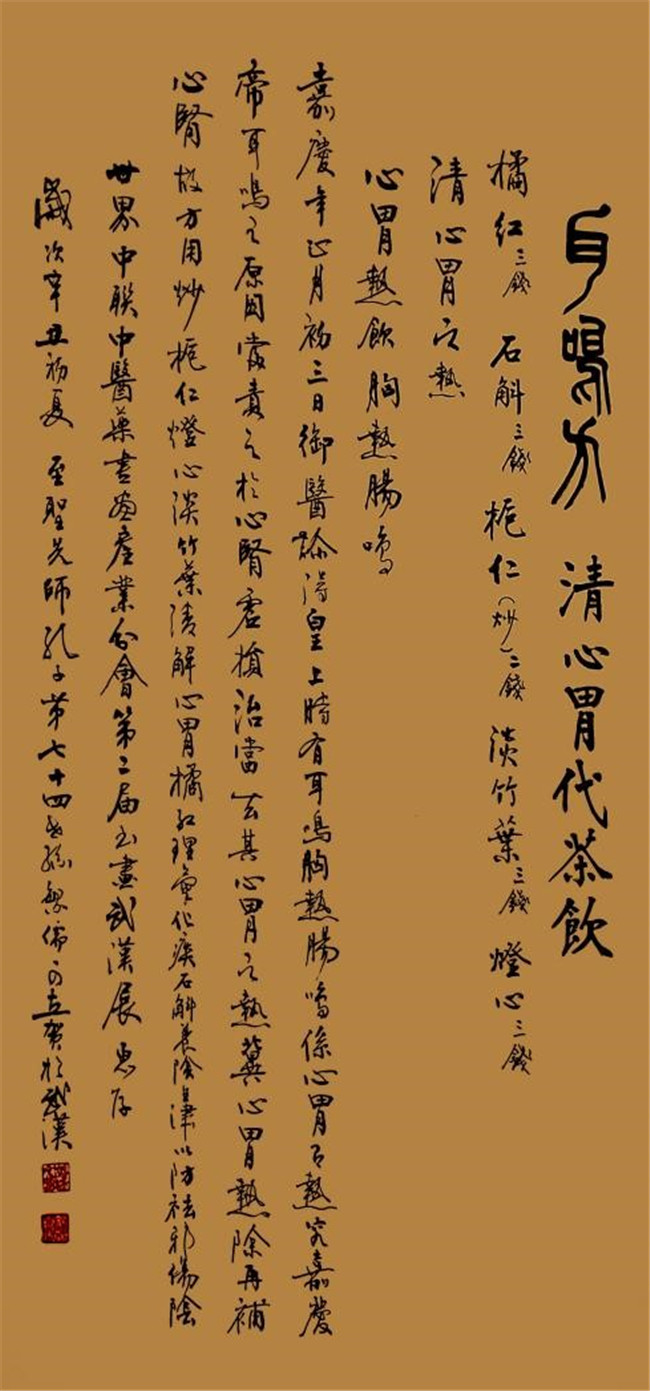 耳鳴方 清心胃代茶飲
橘紅三錢 石斛三錢 梔仁（炒）二錢 淡竹葉三錢 燈心三錢
清心胃之熱
心胃熱飲胸熱腸鳴
嘉慶年正月初三日御醫診得皇上時有耳鳴胸熱腸鳴係心胃之熱究嘉慶
帝耳鳴之原因當責之於心腎虛損治當去其心胃之熱冀心胃熱除再補
心腎故方用炒梔仁燈心淡竹葉清解心胃橘紅理氣化痰石斛養陰生津以防祛邪傷陰
世界中聯中醫藥書畫產業分會第二届书畫武漢展惠存
歲次辛丑初夏 至聖先師孔子第七十四世孫繁儒賀於武漢